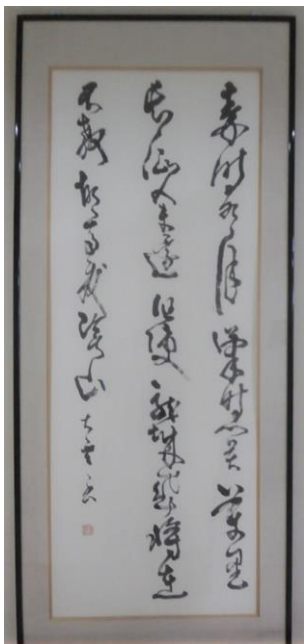 秦時明月漢時關萬里
長征人未還但使龍城飛將在
不教胡馬度陰山